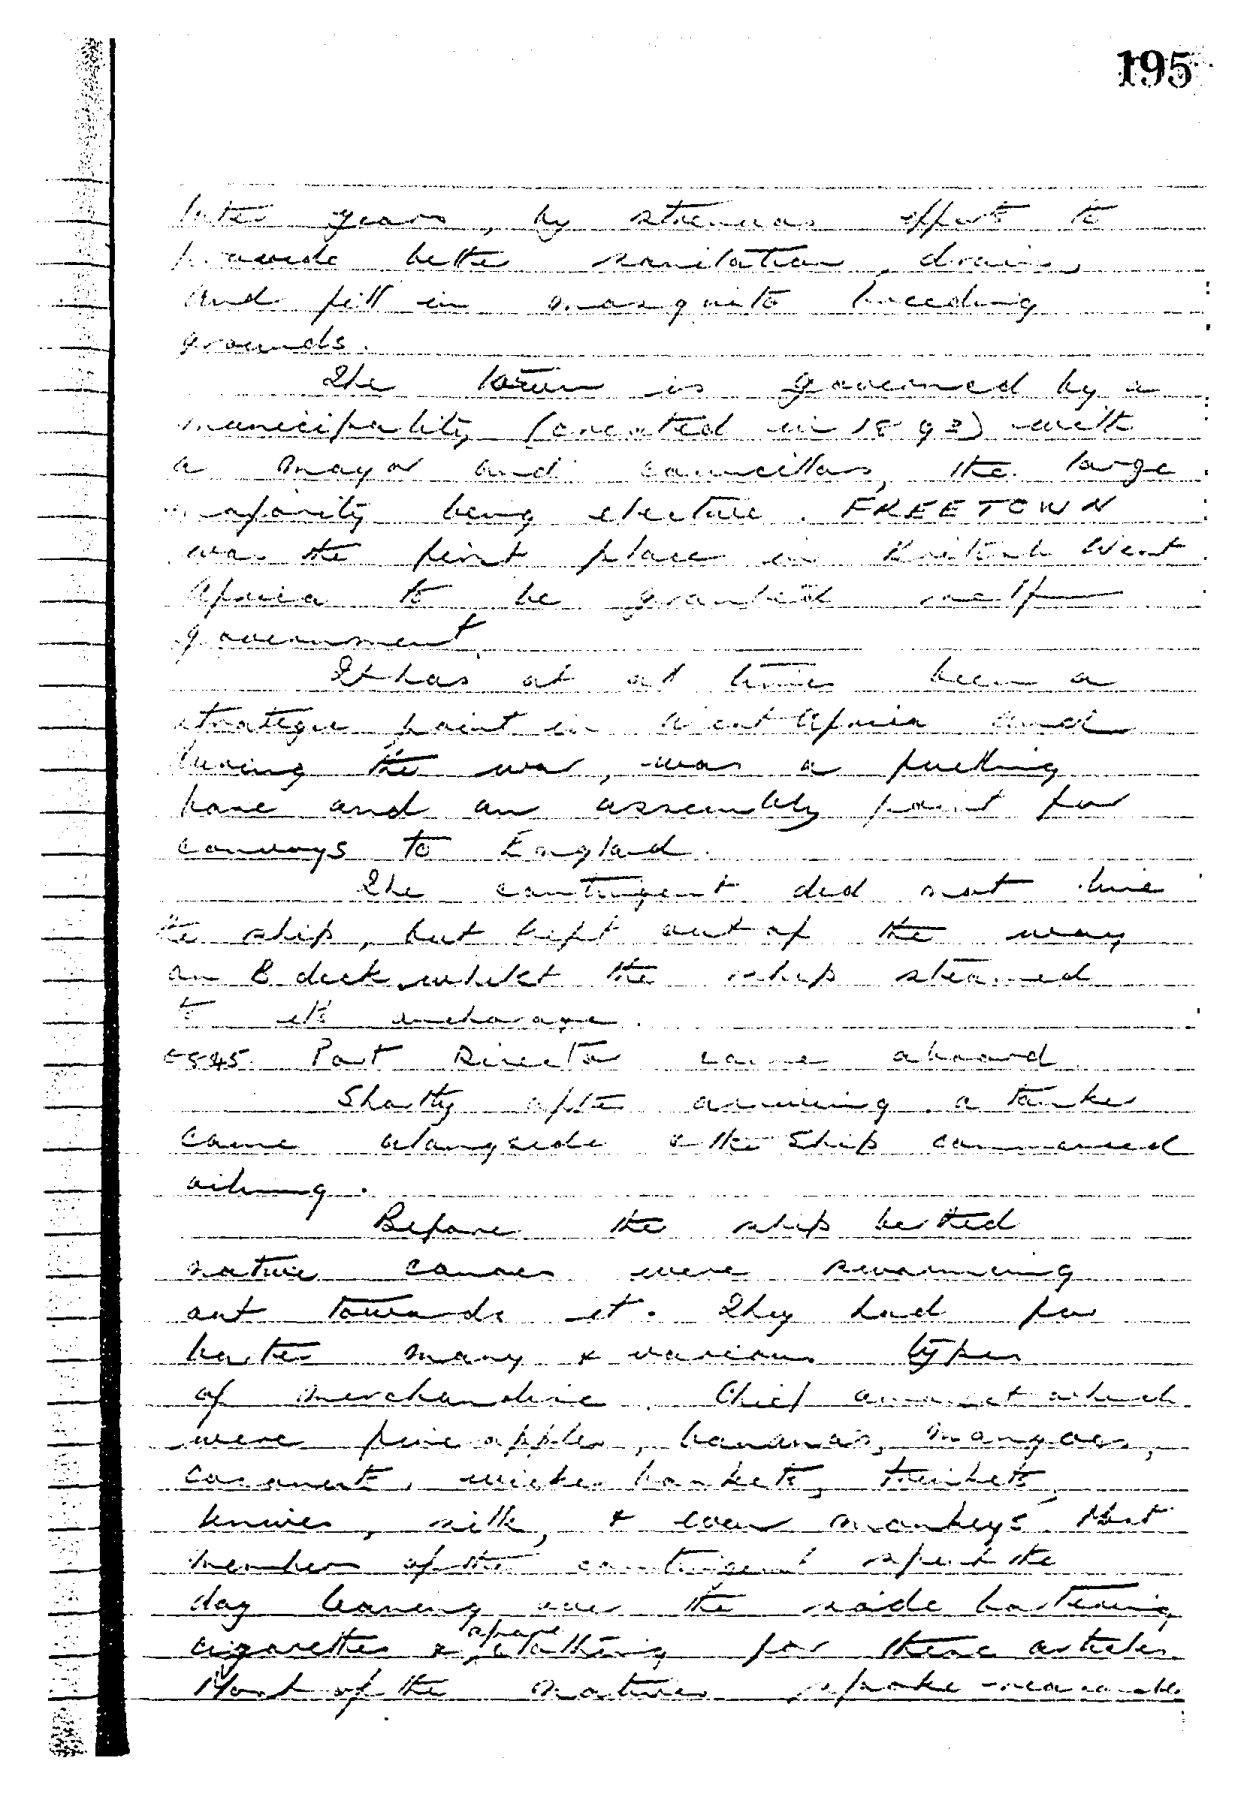 195
later years, by strenuous efforts to
provide better sanitation, drains,
and fill in mosquito breeding
grounds.
The town is governed by a
municipality (created in 1893) with
a mayor and councillors, the large
majority being elective. FREETOWN
was the first place in British West
Africa to be granted self
government.
It has at all times been a
strategic point in West Africa and
during the war, was a fuelling
base and an assembly point for
convoys to England.
The contingent did not line
the ship, but kept out of the way
on B deck, whilst the ship steamed
to its anchorage.
0845. Port Director came aboard
Shortly after arriving a tanker
came alongside & the ship commenced
oiling.
Before the ship berthed
native canoes were swarming
out towards it. They had for
barter many & various types
of merchandise. Chief amongst which
were pineapples, bananas, mangoes,
coconuts, wicker baskets, trinkets,
knives, silk, & even monkeys. Most
members of the contingent spent the
day leaning over the side bartering
cigarettes & spare clothing for these articles.
Most of the natives spoke reasonable